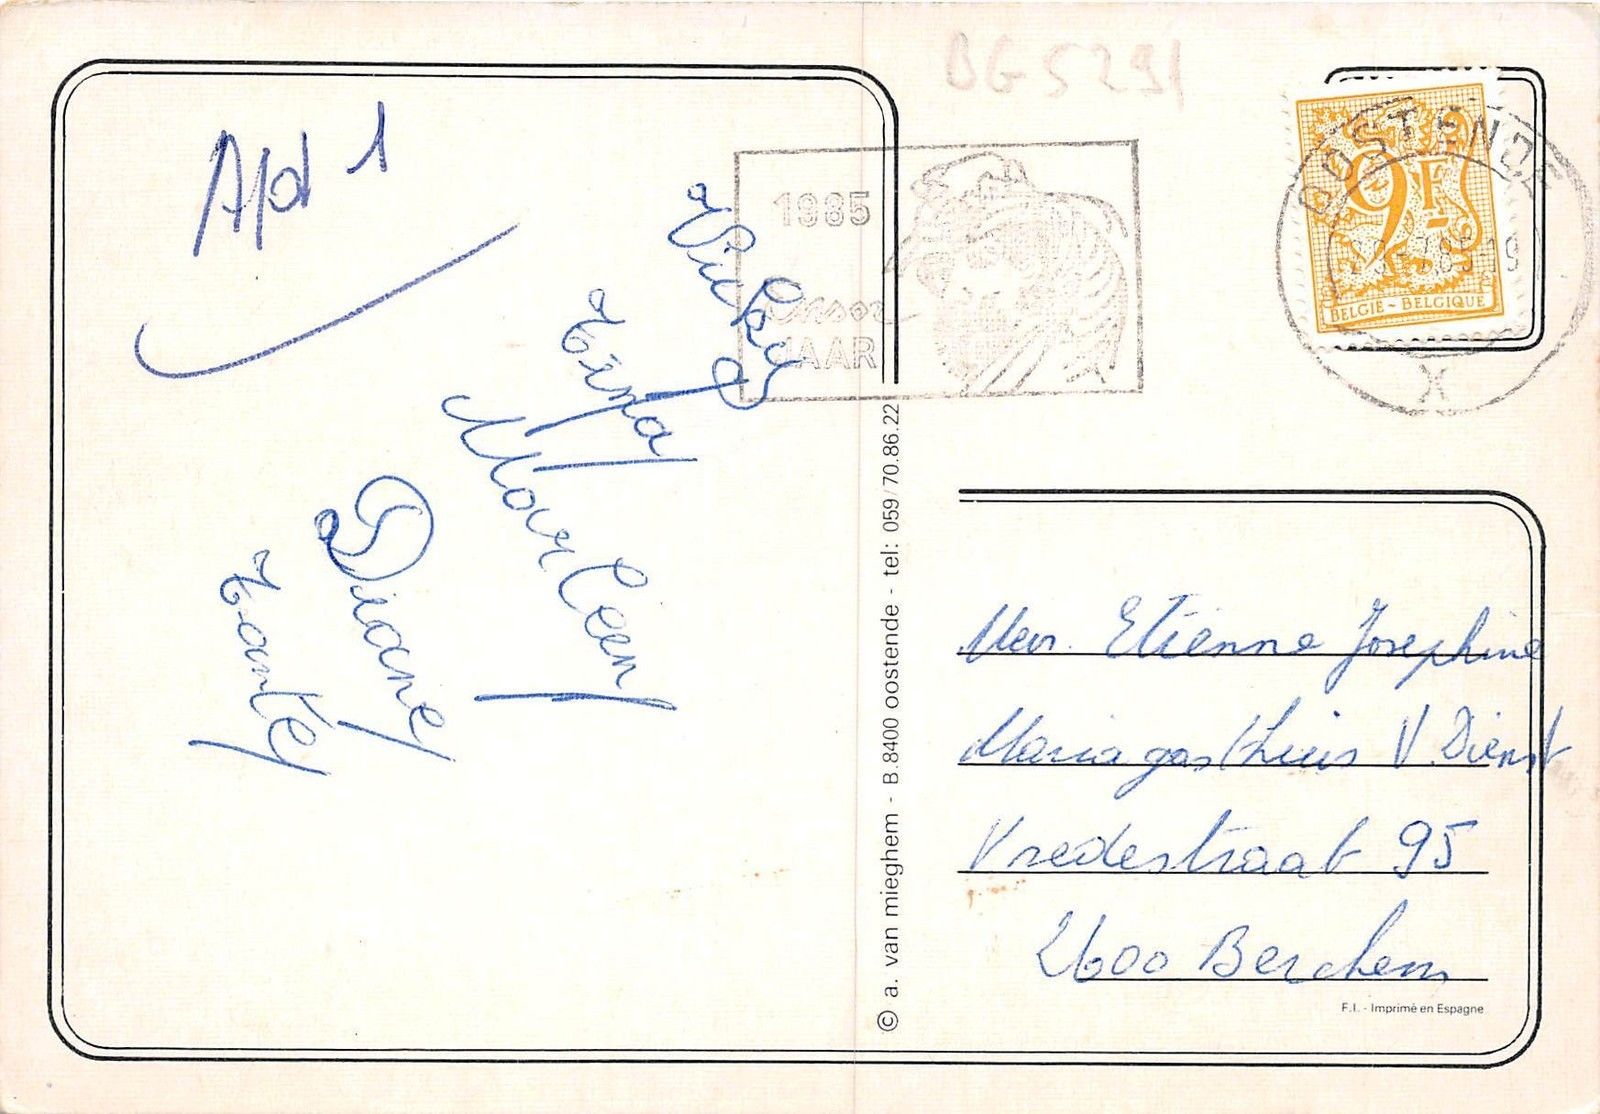 BG 5291
Afd 1
Vicky
Tina
Marleen
Diane
Tante
1985
Ensor
JAAR
OOSTENDE
9F
BELGIE - BELGIQUE
X
© a. van mieghem - B.8400 oostende - tel: 059/70.86.22
Mevr. Etienne Josephine
Maria gasthuis V. Dienst
Vredestraat 95
2600 Berchem
F.I. - Imprimé en Espagne